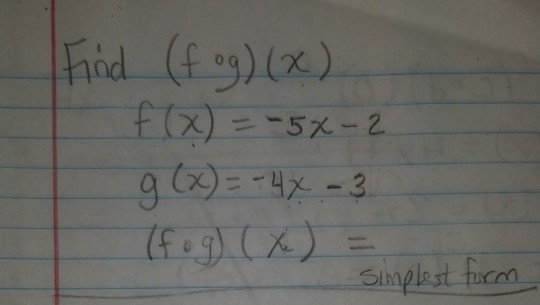 Find (f∘g)(x)
f(x) = -5x - 2
g(x) = -4x - 3
(f∘g)(x) =
simplest form